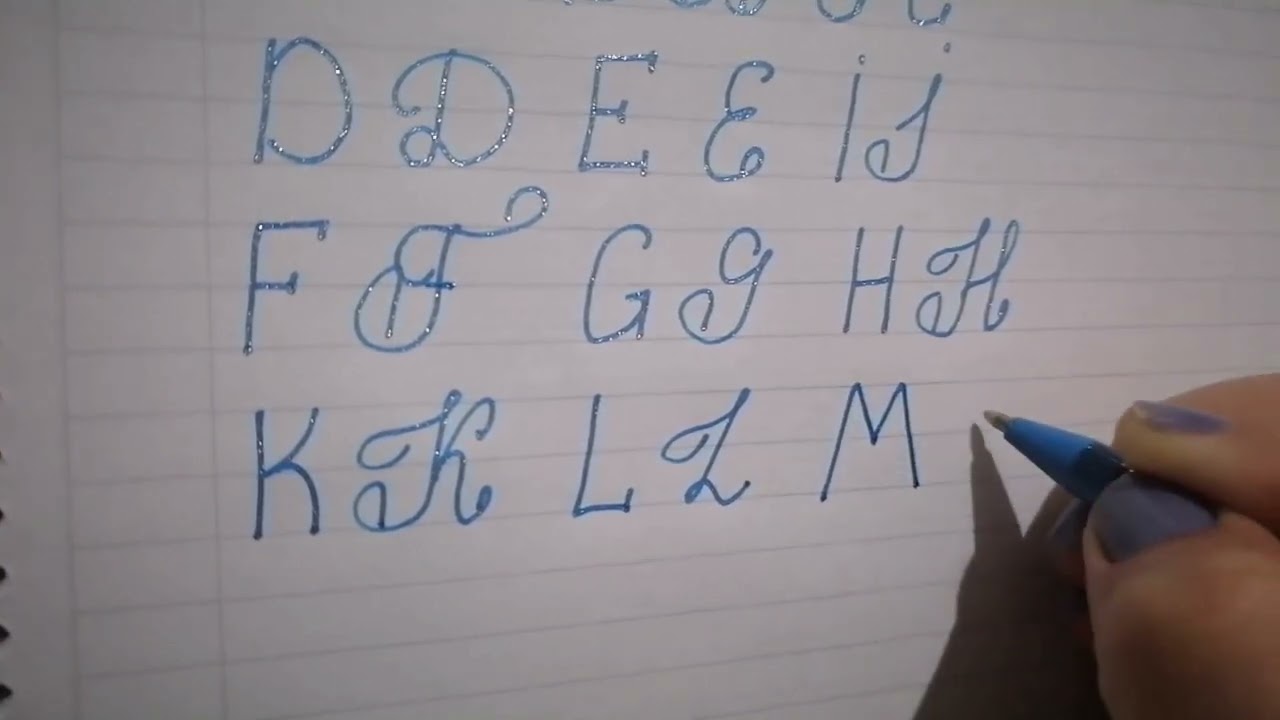 D D E E i j
F F G G H H
K K L L M